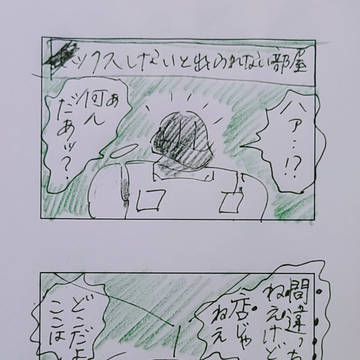 ックスしないと出られない部屋
ハァ…!?
あ
何ん
だぁッ?
間違っち
ねえけど
店じゃ
ねえ
どこだよ
ここは